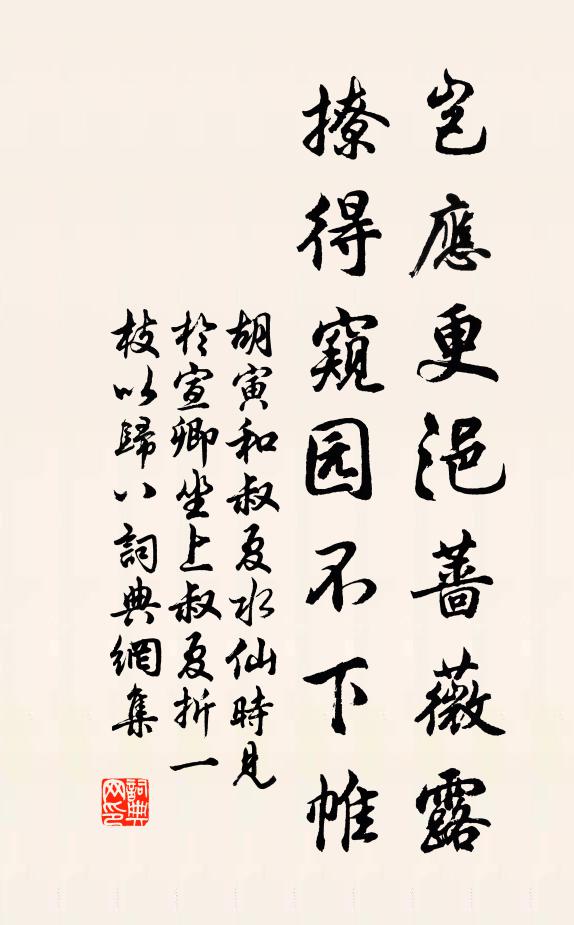 豈應更浥薔薇露
撩得窺园不下帷
胡寅和叔夏水仙時見
於宣卿坐上叔夏折一
枝以歸八詞典網集
詞典
网印